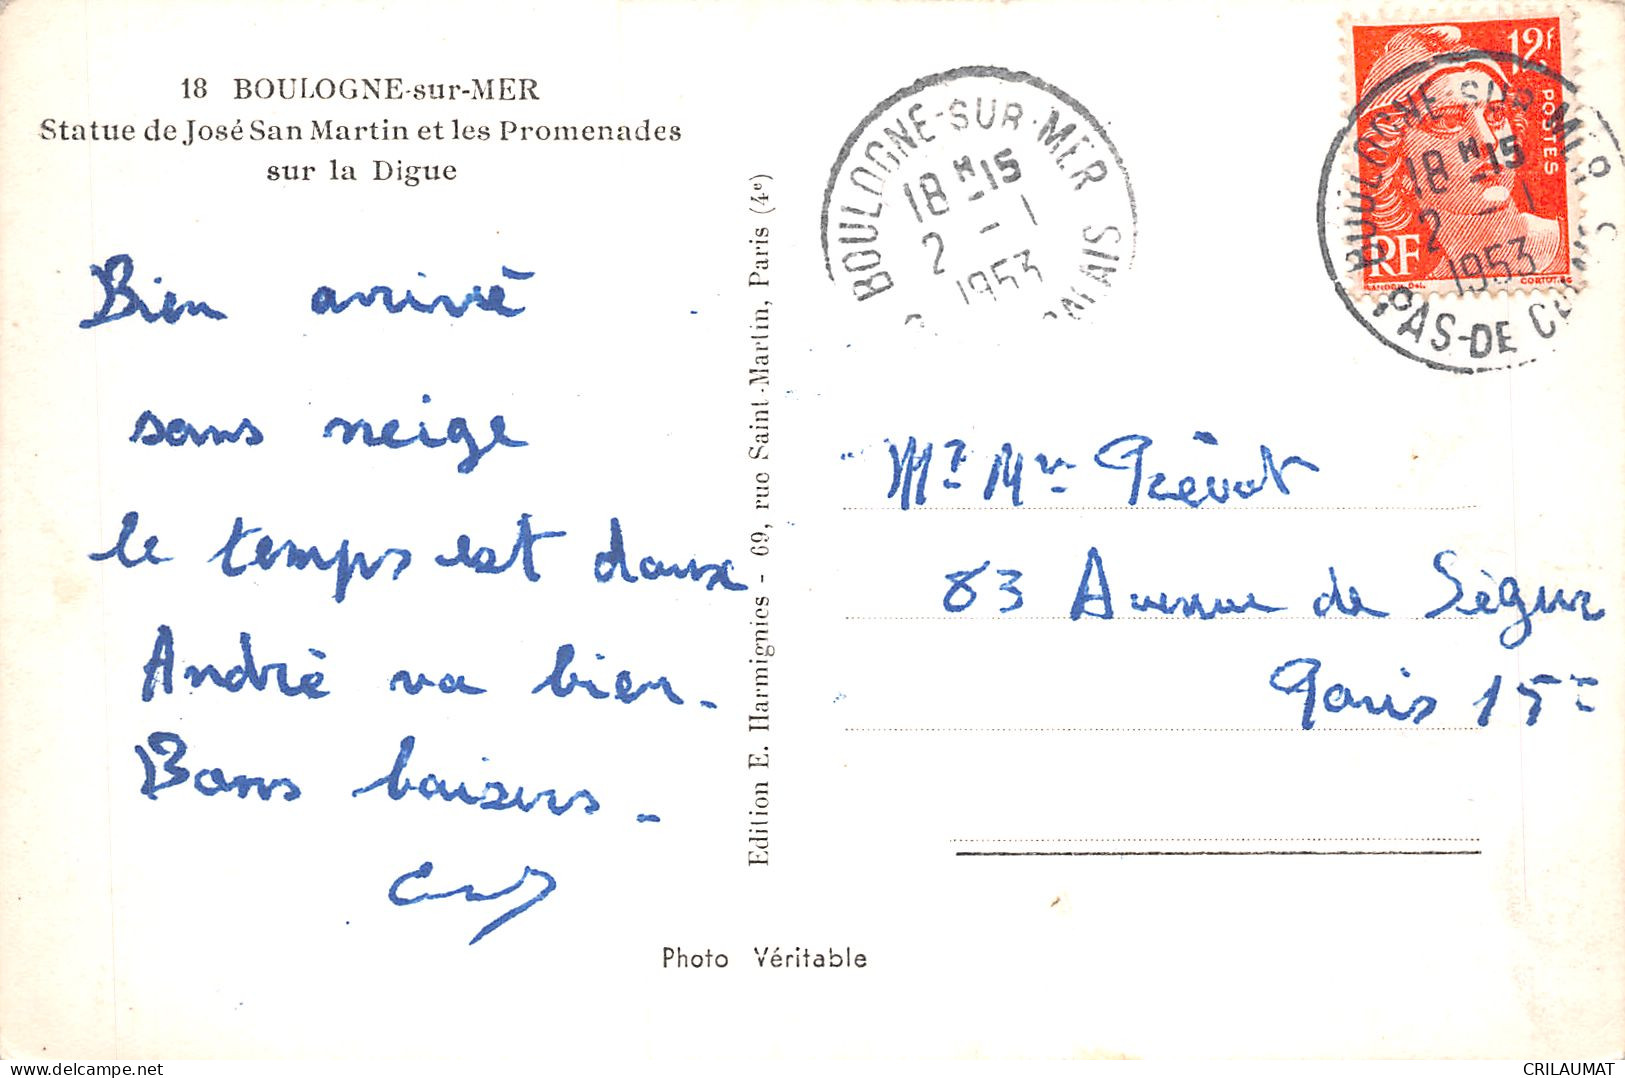 18 BOULOGNE-sur-MER
Statue de José San Martin et les Promenades
sur la Digue
Bien arrivé
sans neige
le temps est doux
André va bien.
Bons baisers.
Edition E. Harmignies - 69, rue Saint-Martin, Paris (4e)
Photo Véritable
BOULOGNE-SUR-MER
18 H 15
2 - 1
1953
CALAIS
12F
POSTES
RF
GANDON Del.
CORTOT SC
BOULOGNE-SUR-MER
18 H 15
2 - 1
1953
PAS-DE CALAIS
Mr Mme Prévot
83 Avenue de Ségur
Paris 15e
CRILAUMAT